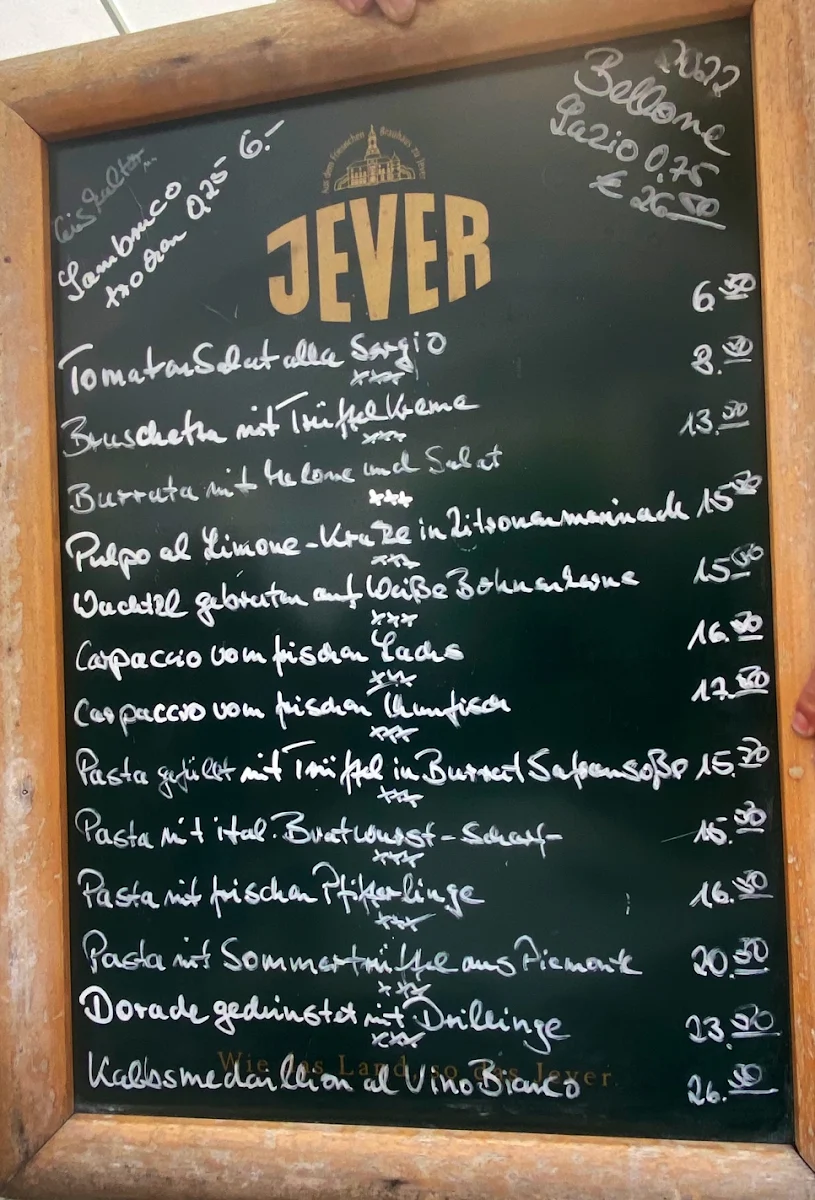 Eiskalter
Lambrusco
trocken 0,25 6.-
2022
Bellone
Lazio 0,75
€ 26.50
Aus dem Friesischen Brauhaus zu Jever
JEVER
TomatenSalat alla Sergio 6.50
Bruschetta mit TrüffelKreme 8.50
***
Burrata mit Melone und Salat 13.50
***
Pulpo al Limone-Kruste in Zitronenmarinade 15.50
***
Wachtel gebraten auf Weiße Bohnenkerne 15.00
***
Carpaccio vom frischen Lachs 16.50
***
Carpaccio vom frischen Thunfisch 17.50
***
Pasta gefüllt mit Trüffel in Burrat Safransoße 15.50
***
Pasta mit ital. Bratwurst-Scharf- 15.50
***
Pasta mit frischen Pfifferlinge 16.50
***
Pasta mit Sommertrüffel aus Piemont 20.50
***
Dorade gedünstet mit Drillinge 23.50
***
Kalbsmedaillion al Vino Bianco 26.50
Wie das Land, so das Jever.